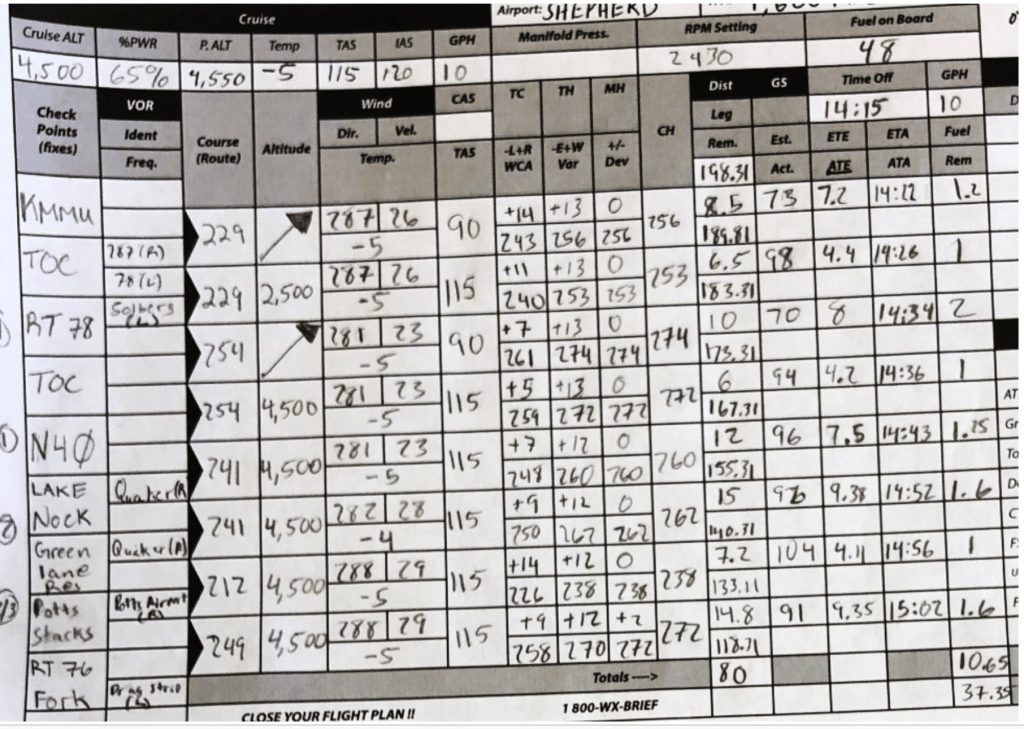 Cruise Airport: SHEPHERD
Cruise ALT %PWR P. ALT Temp TAS IAS GPH Manifold Press. RPM Setting Fuel on Board
4,500 65% 4,550 -5 115 120 10 2430 48
Check Points (fixes) VOR Course (Route) Altitude Wind CAS TC TH MH CH Dist GS Time Off GPH
Leg 14:15 10
Ident Dir. Vel. -L+R WCA -E+W Var +/- Dev Rem. Est. ETE ETA Fuel
Freq. Temp. TAS 198.31 Act. ATE ATA Rem
KMMU 229 287 26 90 +14 +13 0 256 8.5 73 7.2 14:22 1.2
-5 243 256 256 189.81
TOC 287 (R) 229 2,500 287 26 115 +11 +13 0 253 6.5 98 4.4 14:26 1
78 (L) -5 240 253 253 183.31
RT 78 Solberg (L) 254 281 23 90 +7 +13 0 274 10 70 8 14:34 2
-5 261 274 274 173.31
TOC 254 4,500 281 23 115 +5 +13 0 272 6 94 4.2 14:36 1
-5 259 272 272 167.31
N40 241 4,500 281 23 115 +7 +12 0 260 12 96 7.5 14:43 1.25
-5 248 260 260 155.31
LAKE Nock Quaker (R) 241 4,500 282 28 115 +9 +12 0 262 15 96 9.38 14:52 1.6
-4 250 262 262 140.31
Green lane Res Quaker (R) 212 4,500 288 29 115 +14 +12 0 238 7.2 104 4.11 14:56 1
-5 226 238 238 133.11
Potts Stacks Potts Airport (R) 249 4,500 288 29 115 +9 +12 +2 272 14.8 91 9.35 15:02 1.6
-5 258 270 272 118.31
RT 76 Totals ----> 80 10.65
Fork Drag Strip (L) 37.35
CLOSE YOUR FLIGHT PLAN !! 1 800-WX-BRIEF